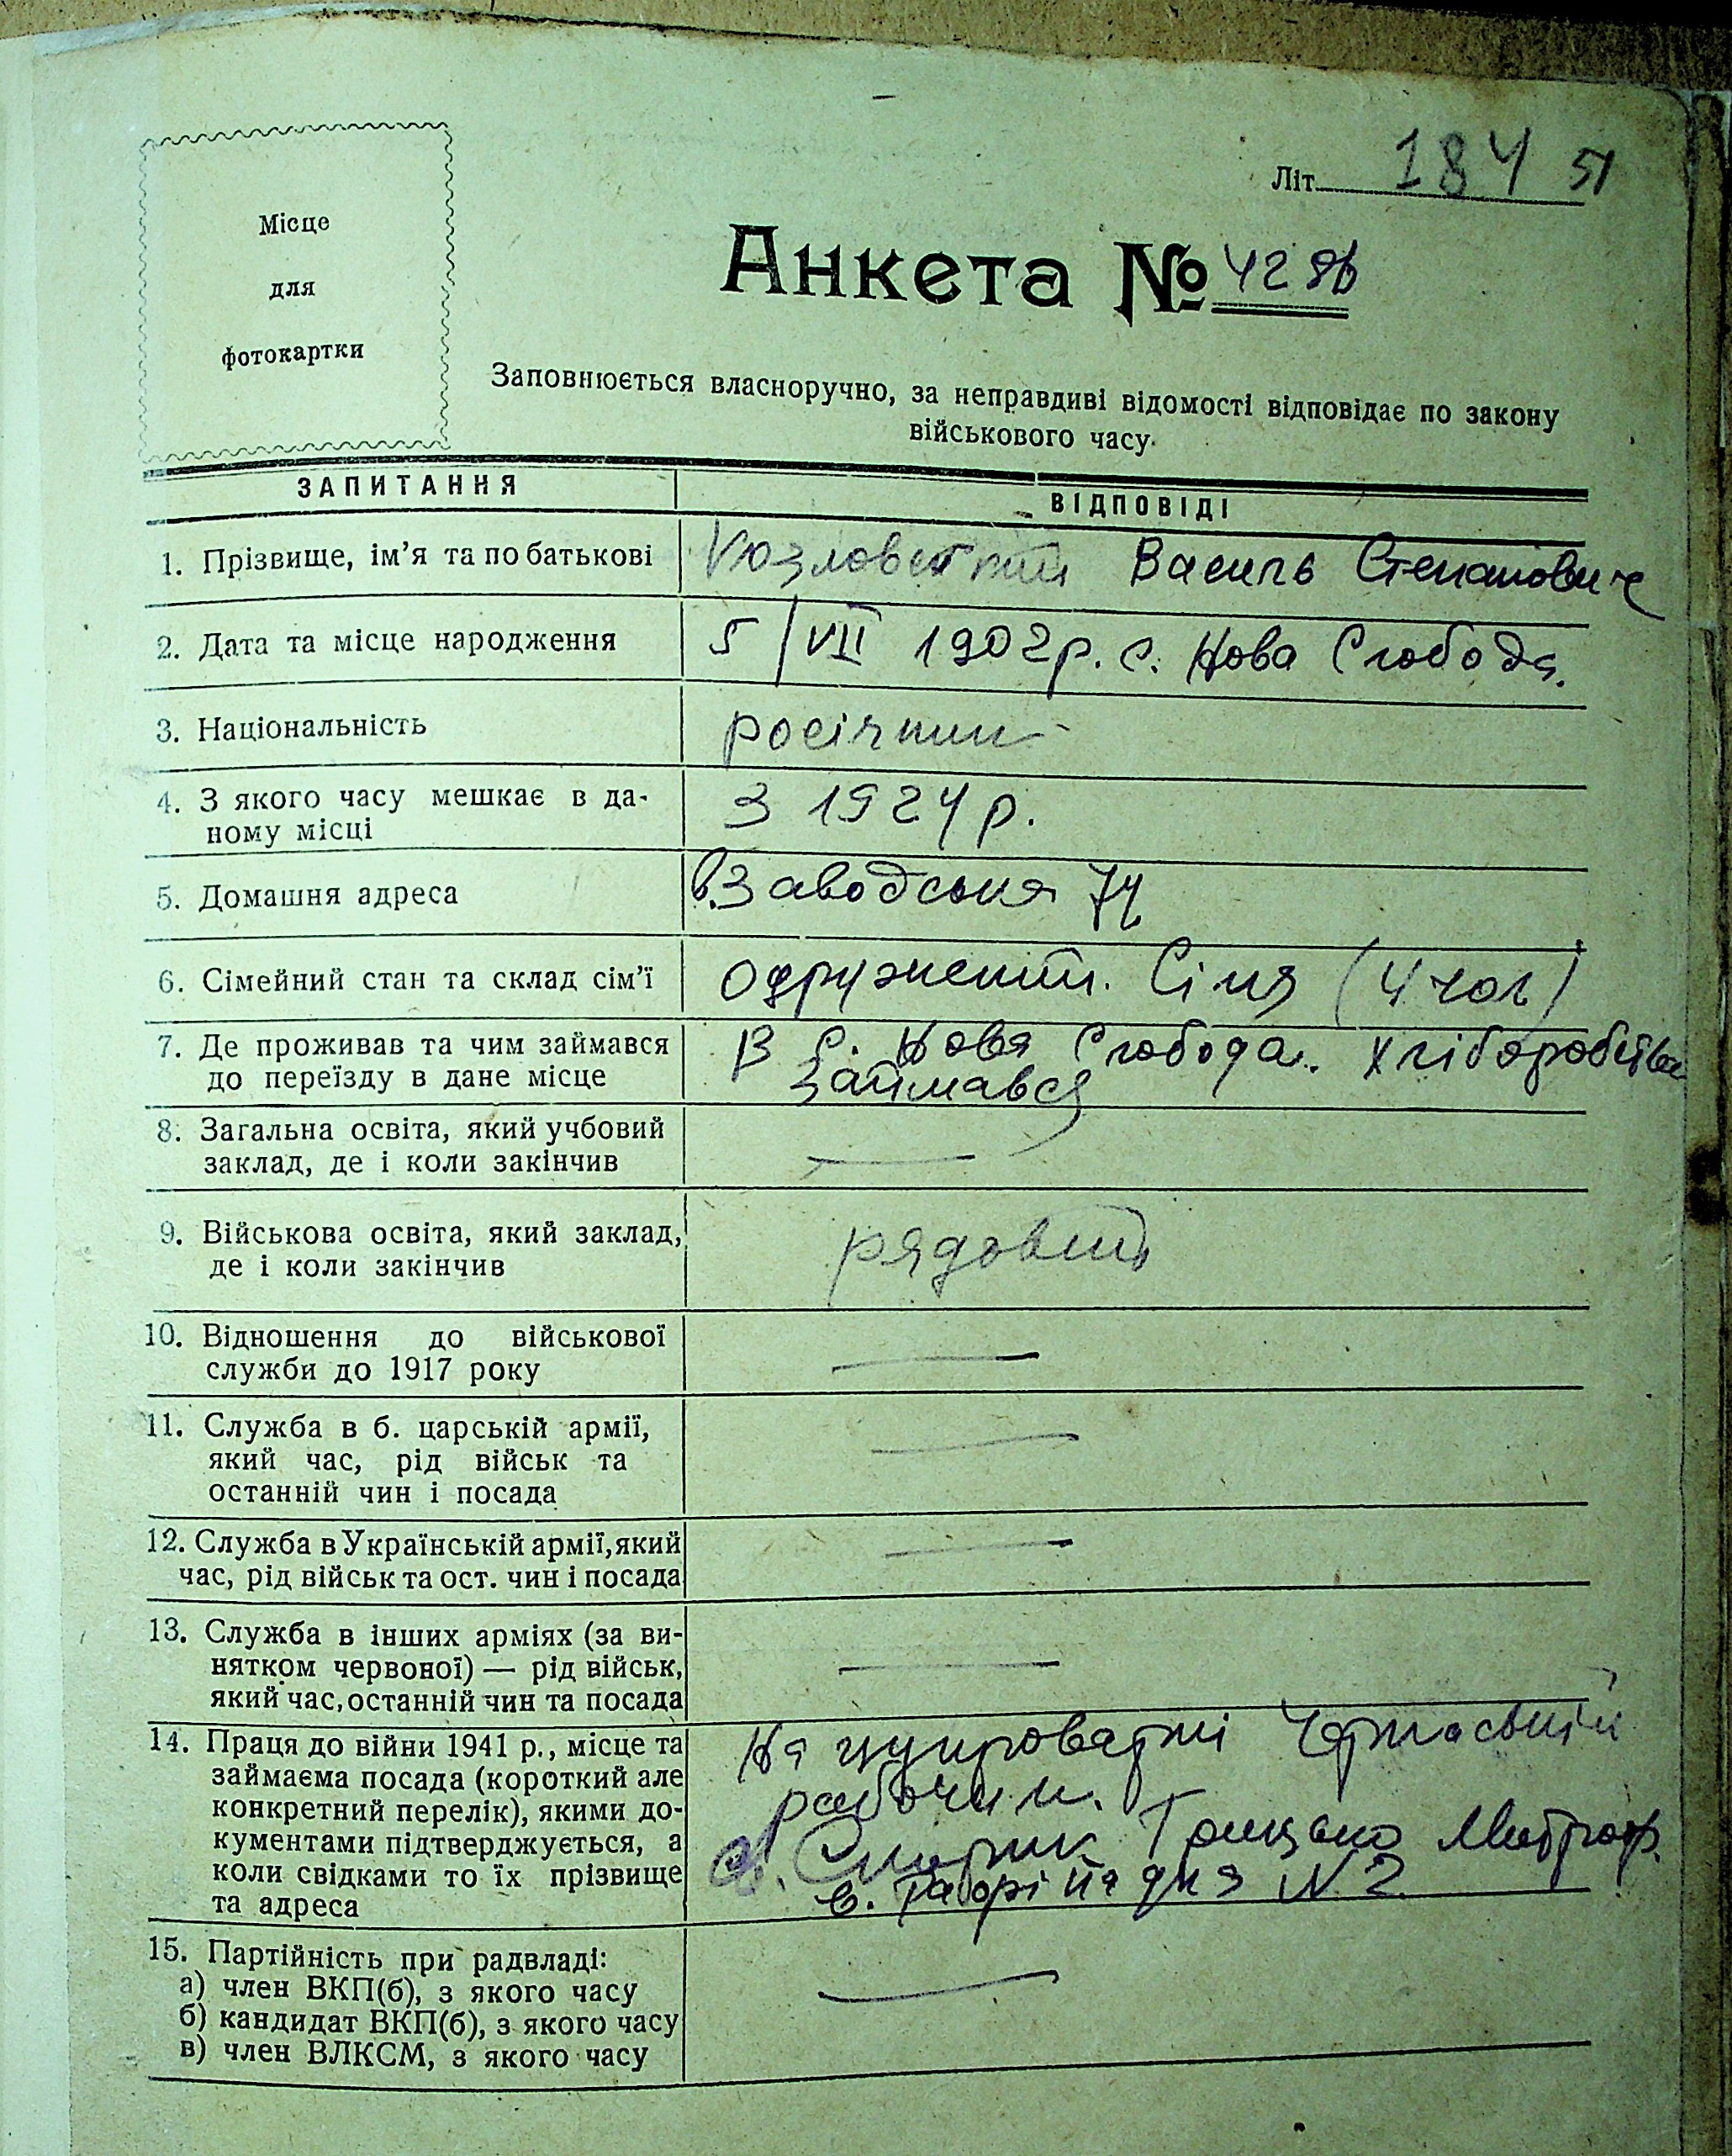 Місце
для
фотокартки
Літ. 184 51
Анкета № 42
Заповнюється власноручно, за неправдиві відомості відповідає по закону
військового часу.
ЗАПИТАННЯ ВІДПОВІДІ
1. Прізвище, ім'я та по батькові Козловський Василь Степанович
2. Дата та місце народження 5/VII 1902р. с. Нова Слобода.
3. Національність росіянин
4. З якого часу мешкає в да-
ному місці З 1924 р.
5. Домашня адреса в. Заводська 74
6. Сімейний стан та склад сім'ї Одружений. Сімя (4 чол)
7. Де проживав та чим займався В с. Нова Слобода. Хліборобства
до переїзду в дане місце займався
8. Загальна освіта, який учбовий
заклад, де і коли закінчив —
9. Військова освіта, який заклад, рядовий
де і коли закінчив
10. Відношення до військової
служби до 1917 року —
11. Служба в б. царській армії, —
який час, рід військ та
останній чин і посада
12. Служба в Українській армії, який —
час, рід військ та ост. чин і посада
13. Служба в інших арміях (за ви-
нятком червоної) — рід військ, —
який час, останній чин та посада
14. Праця до війни 1941 р., місце та На цукроварні
займаєма посада (короткий але рабочим.
конкретний перелік), якими до-
кументами підтверджується, а
коли свідками то їх прізвище
та адреса в. N 2
15. Партійність при радвладі:
а) член ВКП(б), з якого часу —
б) кандидат ВКП(б), з якого часу
в) член ВЛКСМ, з якого часу